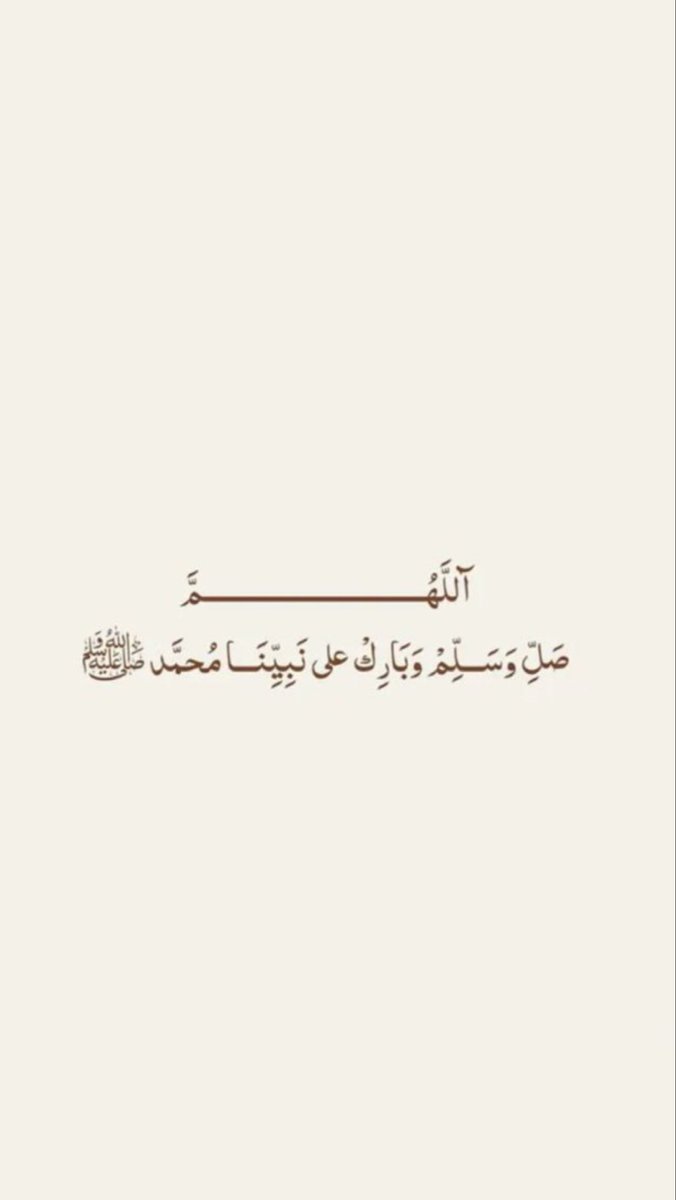 آللَّهُـــــــــــــــــــــمَّ
صَلِّ وَسَــلِّمْ وَبَارِكْ على نَبِيِّنَــا مُحمَّد ﷺ